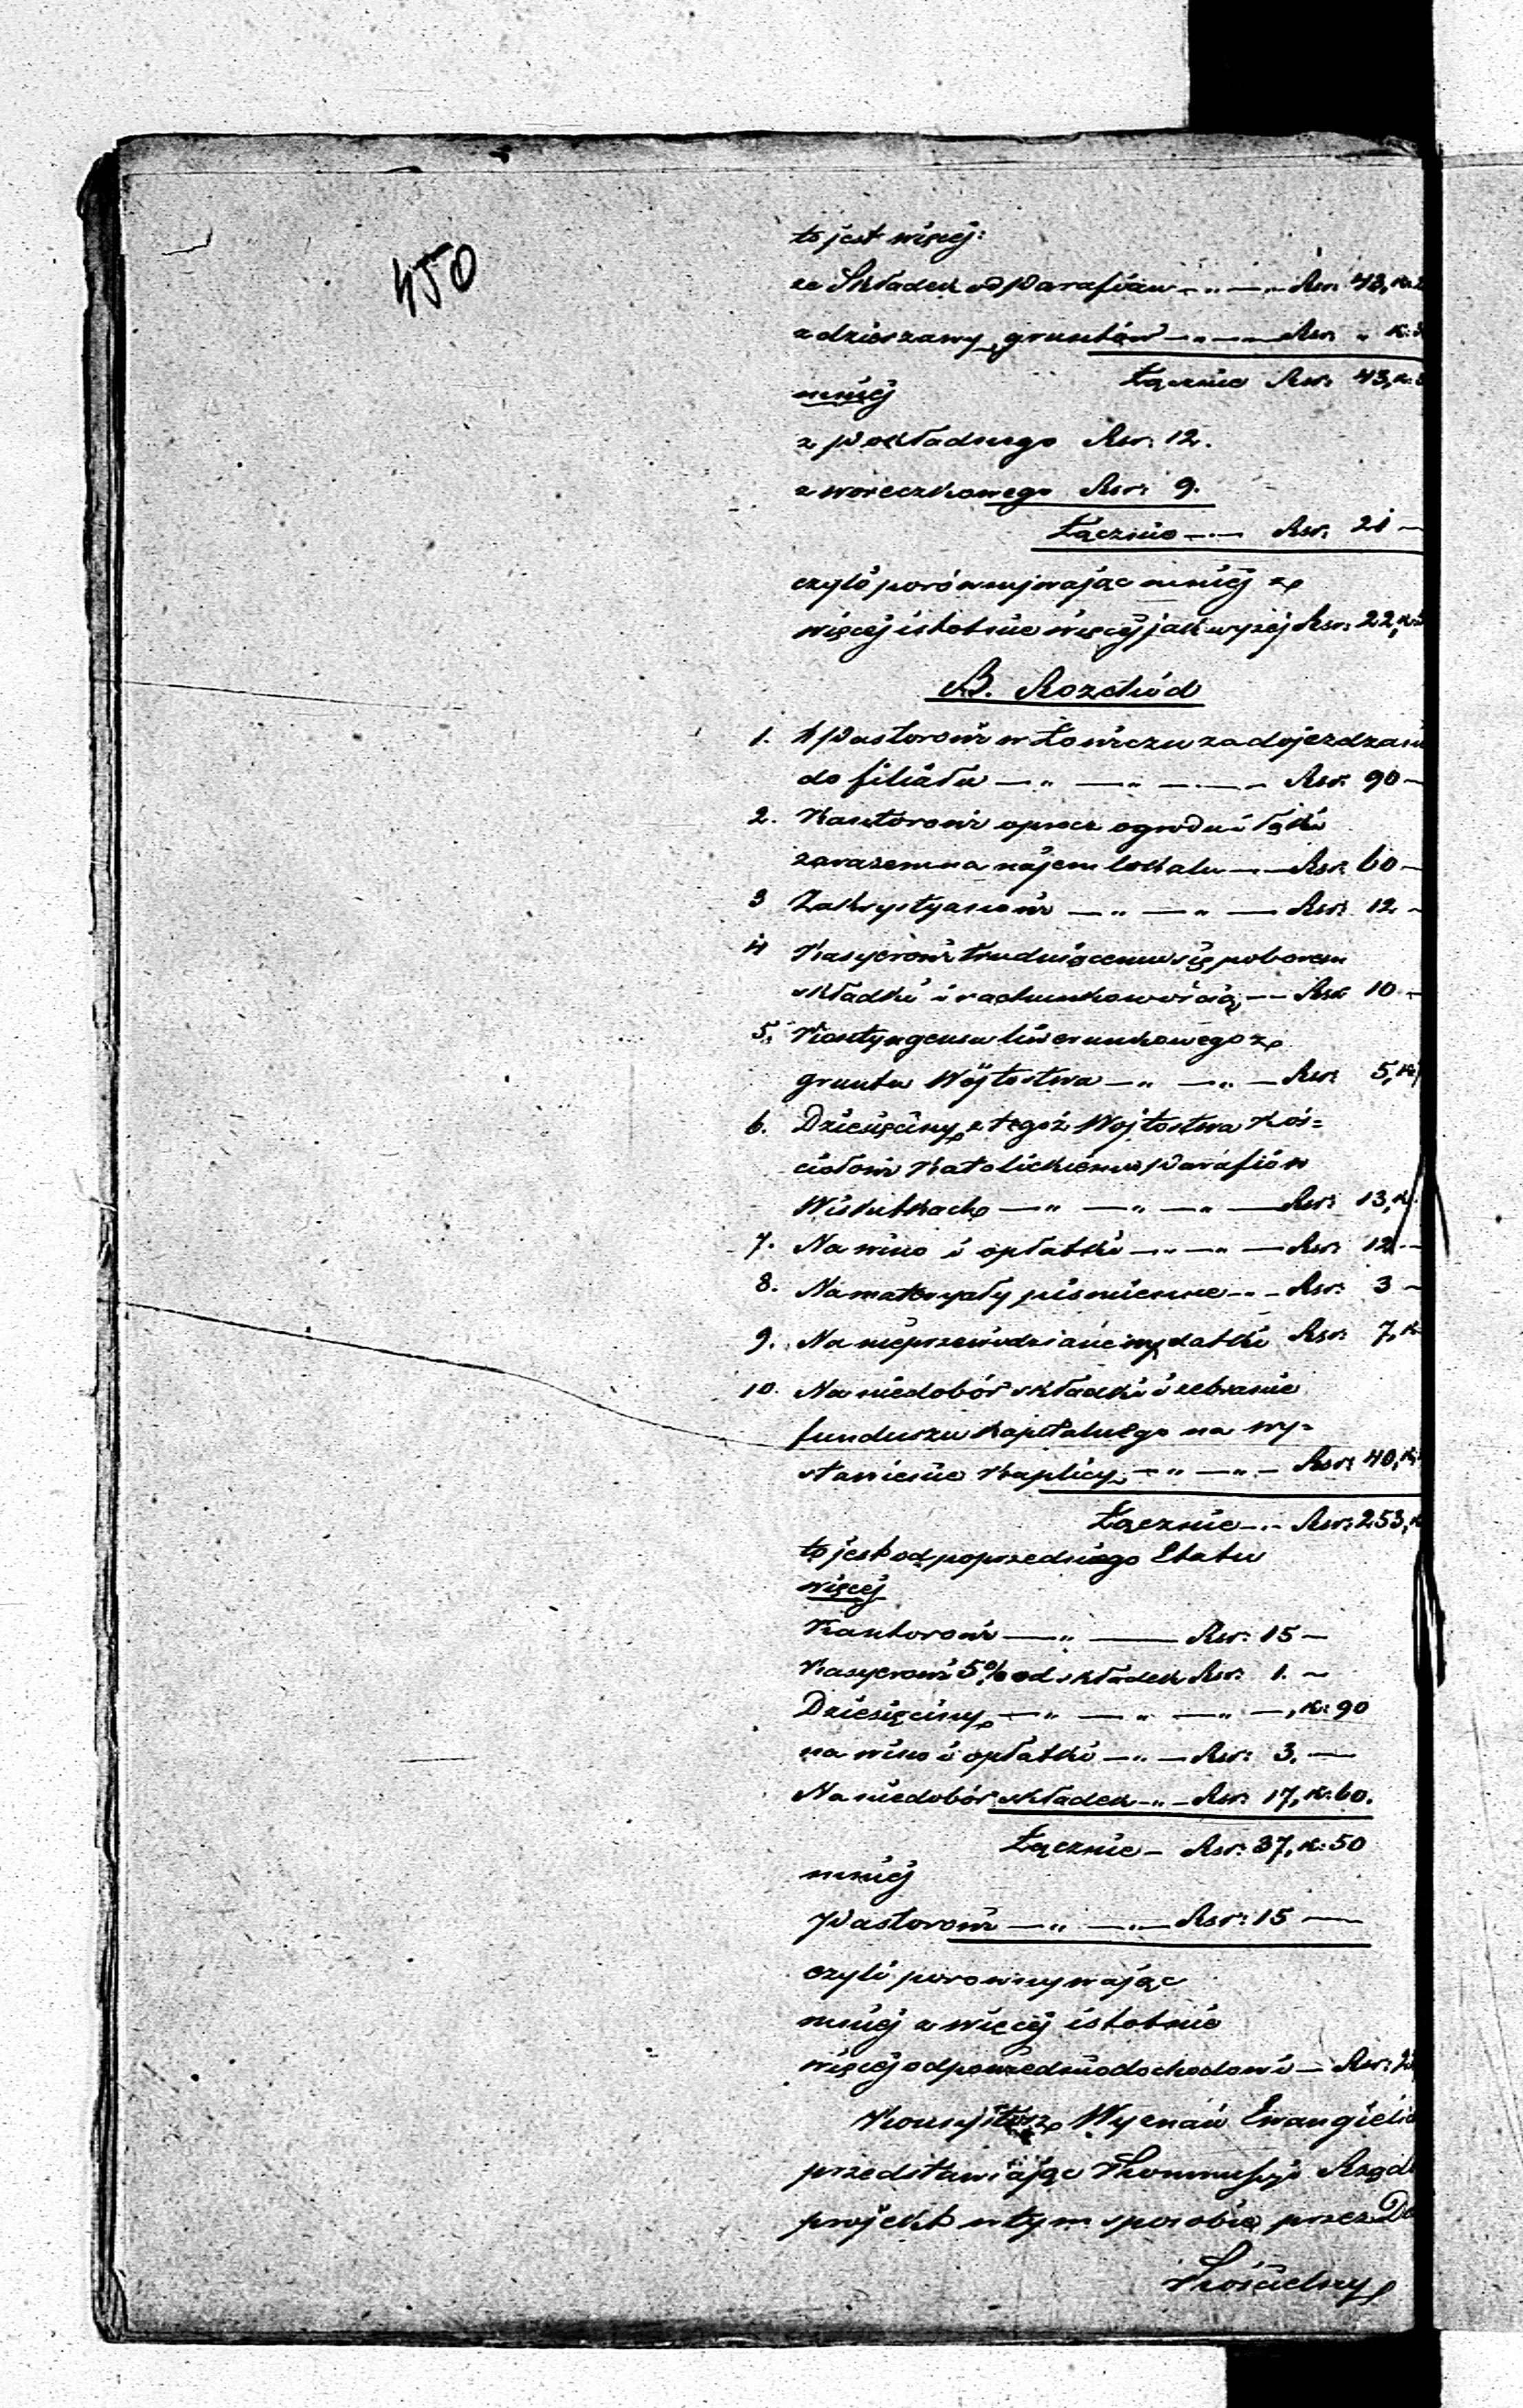 450
to jest więcej:
ze Składek od Parafian — „ — „ Rsr. 43, k. 2
z dzierzawy gruntów — „ — Rsr. „ k.
Łącznie Rsr. 43, k.
mniej
z pokładnego Rsr. 12.
z woreczkowego Rsr. 9.
Łącznie — „ — Rsr. 21 —
czyli porównywając mniej z
więcej istotnie więcej jak wyżej Rsr. 22, k.
B. Rozchód
1. Pastorowi w Łowiczu za dojezdzani
do filiału — „ — „ — „ — Rsr. 90 —
2. Kantorowi oprócz ogrodu i łąki
zarazem na najem lokalu — „ — Rsr. 60 —
3 Zakrystyanowi — „ — „ — Rsr. 12 —
4 Kasyerowi trudniącemu się poborem
składki i rachunkowością — „ — Rsr. 10 —
5. Kontyngensu liwerunkowego z
gruntu Wójtostwa — „ — „ — Rsr. 5, k.
6. Dziesięciny z tegoż Wójtostwa Koś=
ciołowi Katolickiemu Parafii w
Wiskitkach — „ — „ — „ — Rsr. 13, k.
7. Na wino i opłatki — „ — „ — Rsr. 12 —
8. Na materyały piśmienne — „ — Rsr. 3 —
9. Na nieprzewidziane wydatki Rsr. 7, k.
10. Na niedobór składki i zebranie
funduszu kapitalnego na wy=
stawienie Kaplicy — „ — „ — Rsr. 40, k.
Łącznie — „ — Rsr. 253, k.
to jest od poprzedniego Etatu
więcej
Kantorowi — „ — Rsr. 15 —
Kasyerowi 5% od składek Rsr. 1. —
Dziesięciny — „ — „ — „ —, k. 90
na wino i opłatki — „ — Rsr. 3. —
Na niedobór składek — „ — Rsr. 17, k. 60.
Łącznie — Rsr. 37, k. 50
mniej
Pastorowi — „ — „ — Rsr. 15 —
czyli porownywając
mniej z więcej istotnie
więcej odpowiednio dochodowi — Rsr. 2
Konsystorz Wyznań Ewangielic
przedstawiając Kommissyi Rząd
projekt w tym sposobie przez Do
Kościelny